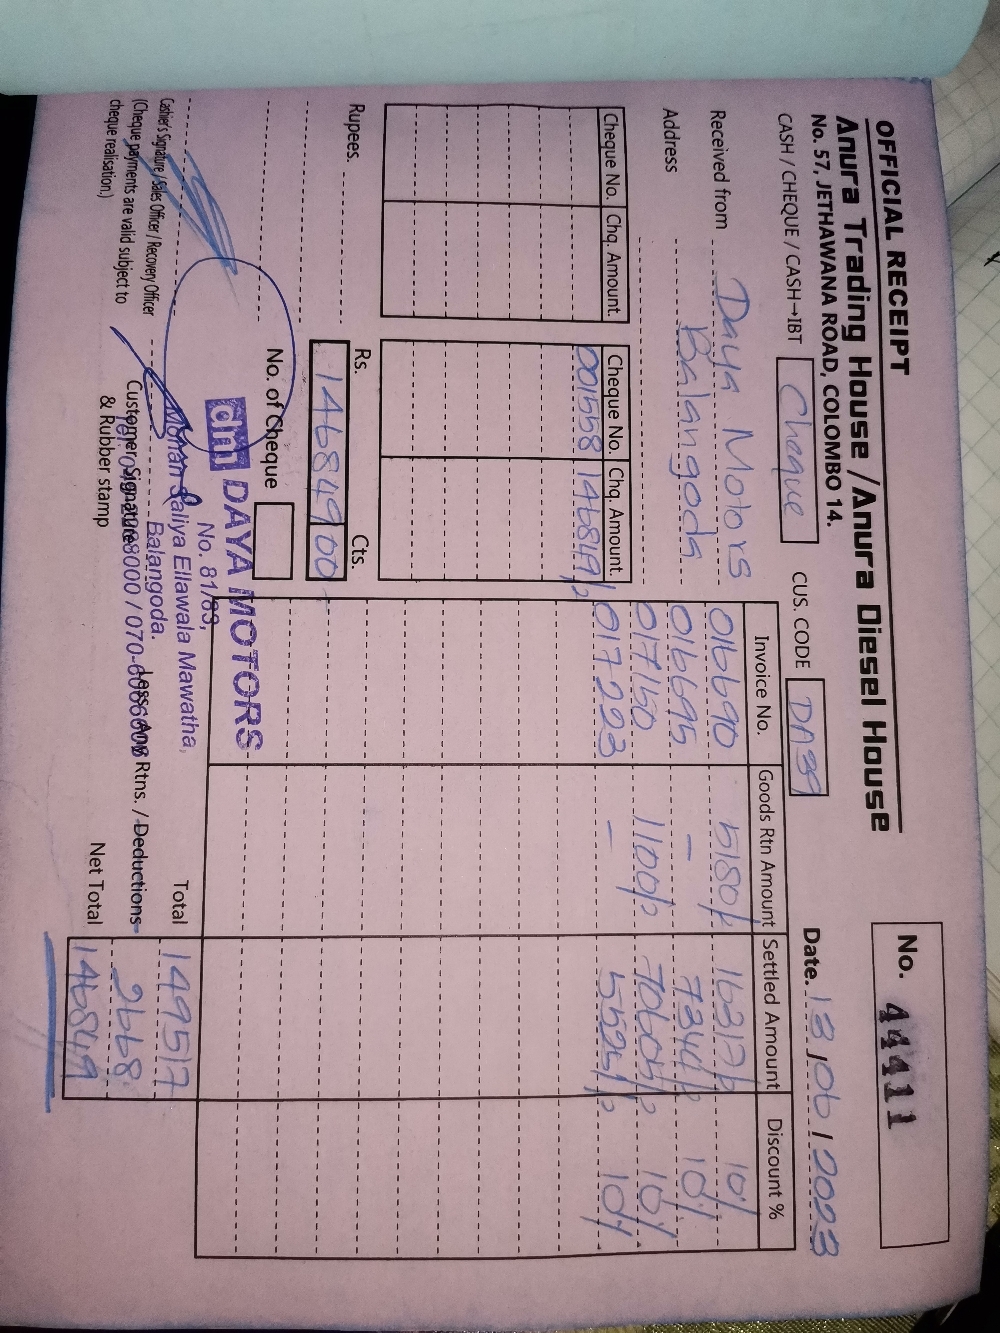 OFFICIAL RECEIPT
No. 44411
Anura Trading House / Anura Diesel House
No. 57, JETHAWANA ROAD, COLOMBO 14.
CASH / CHEQUE / CASH→IBT Cheque CUS. CODE DA39 Date. 13/06/2023
Received from Daya Motors
Address Balangoda
Invoice No. Goods Rtn Amount Settled Amount Discount %
016690 5180/= 16317/= 10%
016695 - 7344/= 10%
017150 1100/= 70605/= 10%
017223 - 5525/= 10%
Cheque No. Chq. Amount Cheque No. Chq. Amount
001558 146849/=
Rupees.
Rs. Cts.
146849 00
No. of Cheque
dm DAYA MOTORS
No. 81/83,
Mohan Saliya Ellawala Mawatha,
Balangoda.
Total 149517
Less: Any Rtns. / Deductions 2668
Net Total 146849
Cashier's Signature / Sales Officer / Recovery Officer
(Cheque payments are valid subject to
cheque realisation.)
Customer Signature
& Rubber stamp